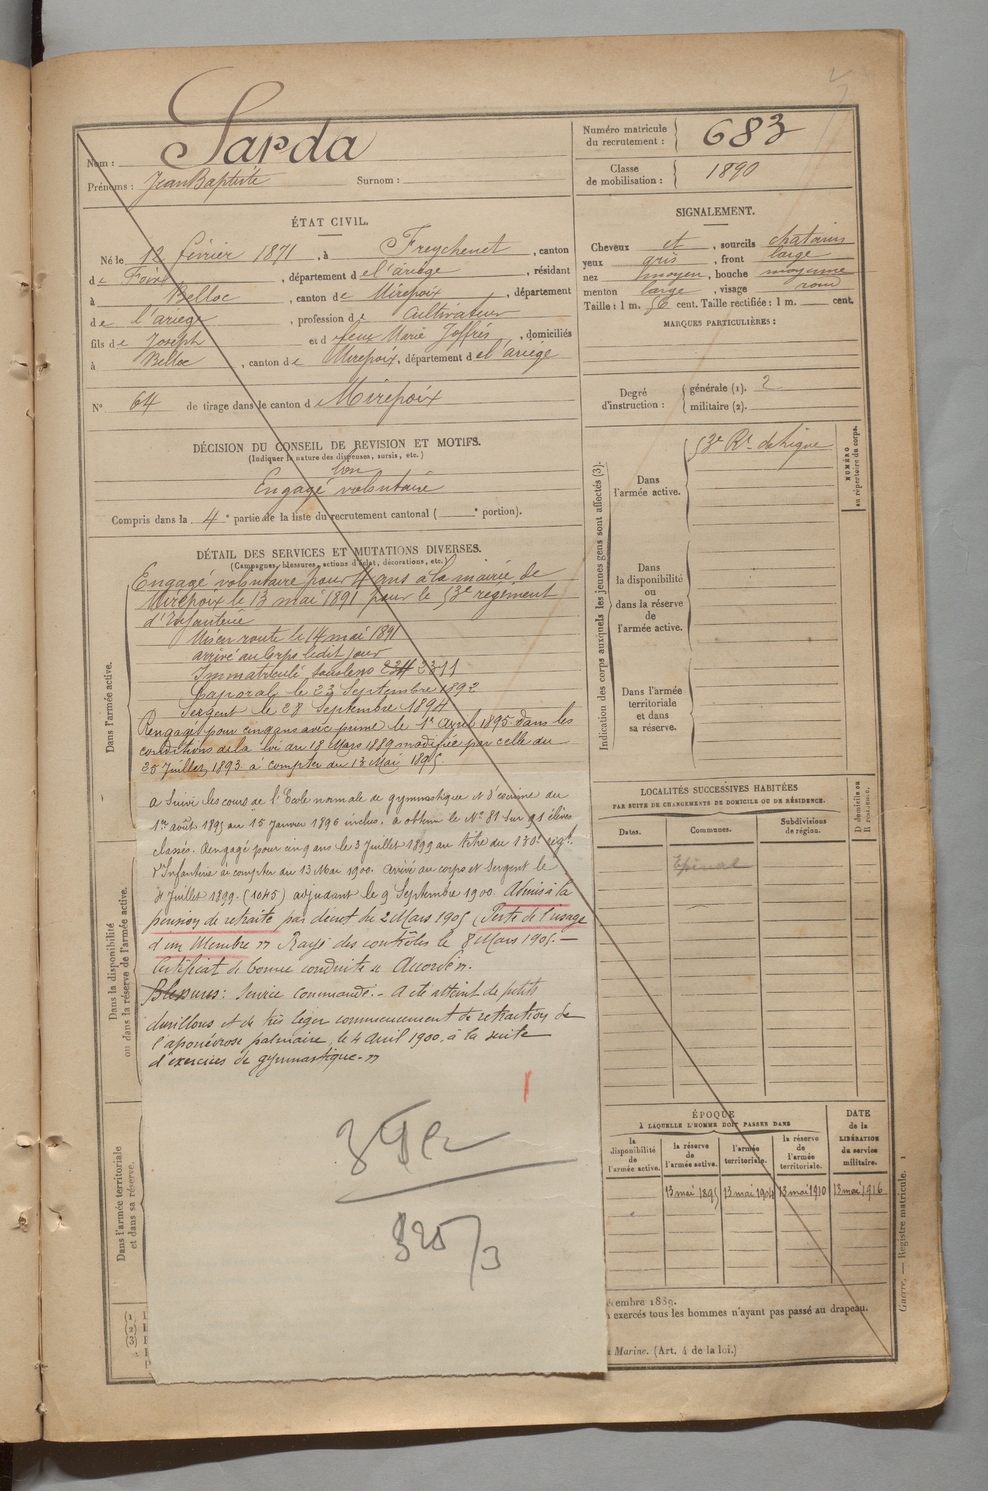 Nom : Sarda
Prénoms : Jean Baptiste Surnom :
Numéro matricule du recrutement : 683
Classe de mobilisation : 1890
ÉTAT CIVIL.
Né le 12 février 1871, à Freychenet, canton
de Foix, département de l'ariège, résidant
à Belloc, canton de Mirepoix, département
de l'ariege, profession de Cultivateur
fils de Joseph et d feue Marie Joffrès, domiciliés
à Belloc, canton de Mirepoix, département de l'ariège
N° 64 de tirage dans le canton de Mirepoix
SIGNALEMENT.
Cheveux et, sourcils chatains
yeux gris, front large
nez moyen, bouche moyenne
menton large, visage rond
Taille : 1 m. 56 cent. Taille rectifiée : 1 m. cent.
MARQUES PARTICULIÈRES :
Degré d'instruction : générale (1). 2
militaire (2).
DÉCISION DU CONSEIL DE REVISION ET MOTIFS.
(Indiquer la nature des dispenses, sursis, etc.)
bon
Engagé volontaire
Compris dans la 4e partie de la liste du recrutement cantonal ( e portion).
DÉTAIL DES SERVICES ET MUTATIONS DIVERSES.
(Campagnes, blessures, actions d'éclat, décorations, etc.)
Dans l'armée active.
Engagé volontaire pour 4 ans à la mairie de
Mirepoix le 13 mai 1891 pour le 53e régiment
d'Infanterie
Mis en route le 14 mai 1891
arrivé au Corps ledit jour
Immatriculé sous le no 2311
Caporal le 23 Septembre 1892
Sergent le 28 Septembre 1894
Rengagé pour cinq ans avec prime le 1er Avril 1895 dans les
conditions de la loi du 18 Mars 1889 modifiée par celle du
25 Juillet 1893 à compter du 13 Mai 1895
a suivi les cours de l'Ecole normale de gymnastique et d'escrime du
1er août 1895 au 15 Janvier 1896 inclus. a obtenu le No 81 sur 91 élèves
classés. Rengagé pour cinq ans le 3 Juillet 1899 au titre du 130e régt.
d'Infanterie à compter du 13 Mai 1900. arrivé au corps et Sergent le
Juillet 1899. (1045) adjudant le 9 Septembre 1900. Admis à la
pension de retraite par décret du 2 Mars 1905 (Perte de l'usage
d'un Membre) Rayé des contrôles le 8 Mars 1905. —
Certificat de bonne conduite "Accordé".
Blessures : Service commandé. - A été atteint de petits
durillons et de très léger commencement de rétraction de
l'aponévrose palmaire, le 4 Avril 1900, à la suite
d'exercices de gymnastique.
Dans la disponibilité ou dans la réserve de l'armée active.
Dans l'armée territoriale et dans sa réserve.
Indication des corps auxquels les jeunes gens sont affectés (3).
NUMÉRO au répertoire du corps.
Dans l'armée active. 53e Rt. de Ligne
Dans la disponibilité ou dans la réserve de l'armée active.
Dans l'armée territoriale et dans sa réserve.
LOCALITÉS SUCCESSIVES HABITÉES
PAR SUITE DE CHANGEMENTS DE DOMICILE OU DE RÉSIDENCE.
Dates. Communes. Subdivisions de région.
Epinal
ÉPOQUE
À LAQUELLE L'HOMME DOIT PASSER DANS
la disponibilité de l'armée active.
la réserve de l'armée active.
l'armée territoriale.
la réserve de l'armée territoriale.
DATE de la LIBÉRATION du service militaire.
13 mai 1895 13 mai 1904 13 mai 1910 13 mai 1916
écembre 1889.
exercés tous les hommes n'ayant pas passé au drapeau.
Marine. (Art. 4 de la loi.)
Guerre. — Registre matricule. 1